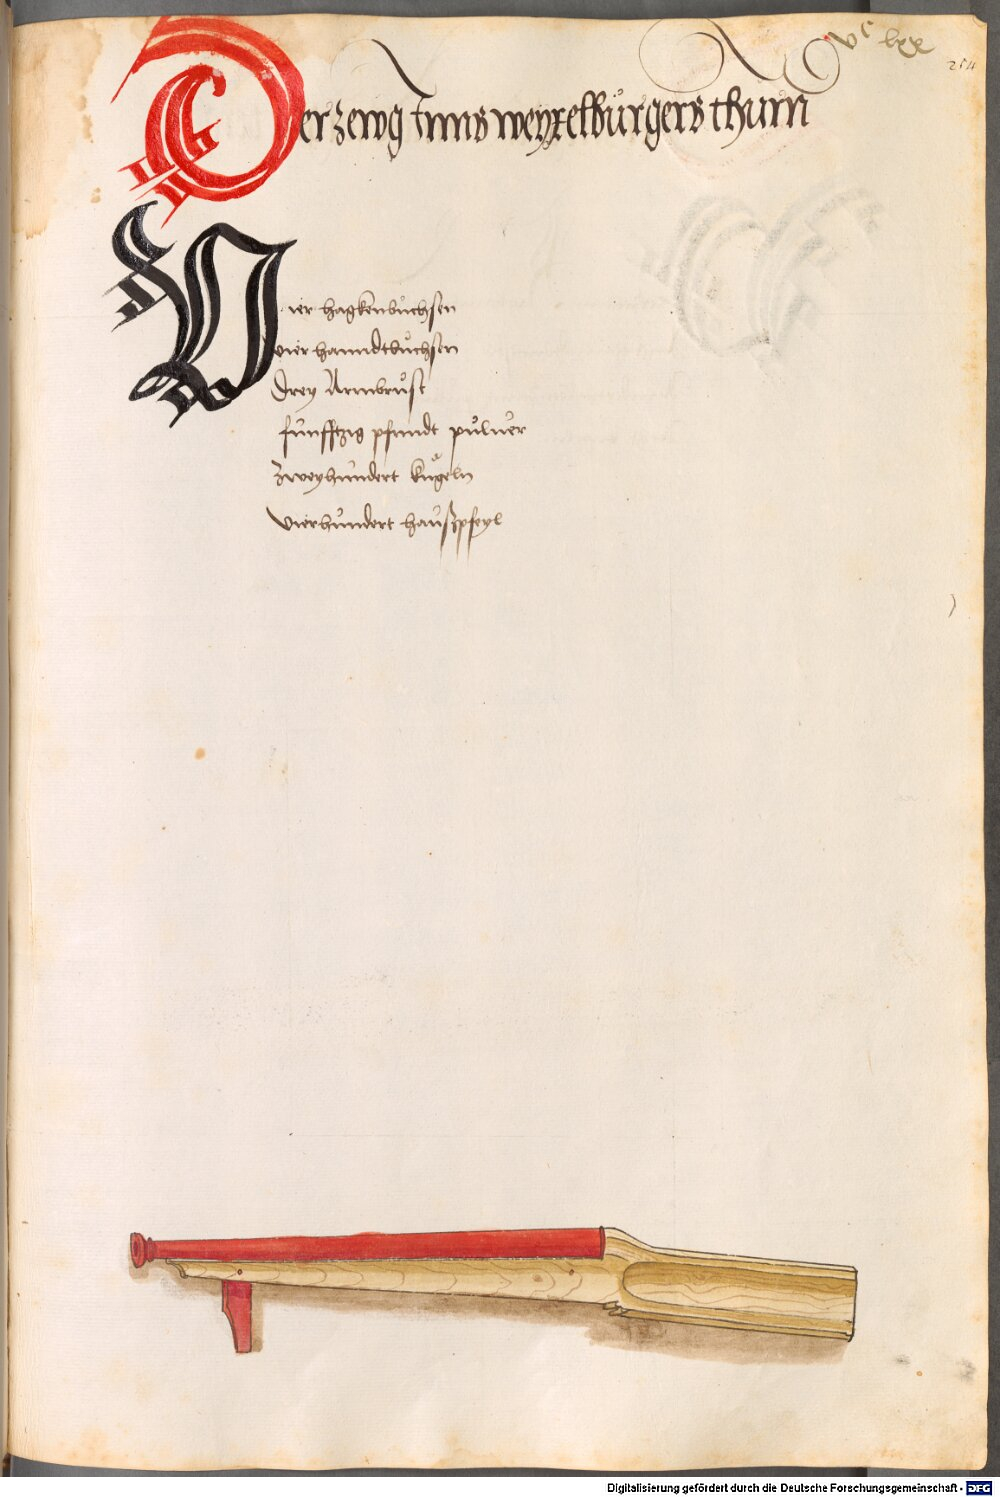 vc lxx
254
Der zewg Inns weyxelburgers thurn
Vier hagkenbuchsen
vier hanndtbuchsen
Drey Armbrust
fünfftzig pfundt puluer
zweyhundert kugeln
vierhundert hauszpfeyl
Digitalisierung gefördert durch die Deutsche Forschungsgemeinschaft - DFG